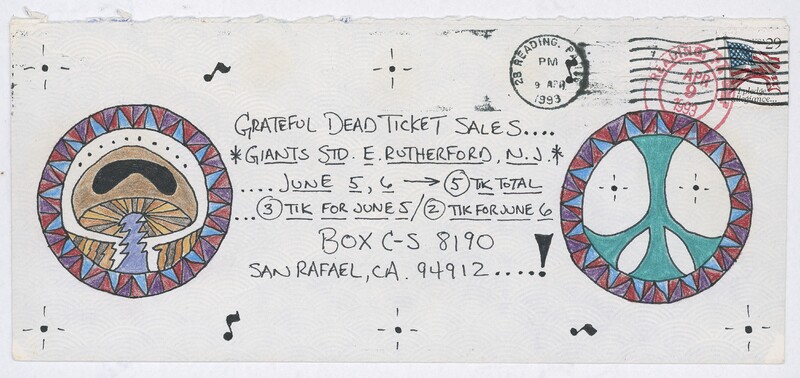 28 READING, P
PM
9 APR
1993
READING,
APR
9
1993
29
GRATEFUL DEAD TICKET SALES....
*GIANTS STD. E. RUTHERFORD, N.J.*
....JUNE 5, 6 → 5 TIK TOTAL
...3 TIK FOR JUNE 5/2 TIK FOR JUNE 6
BOX C-S 8190
SAN RAFAEL, CA. 94912.....!